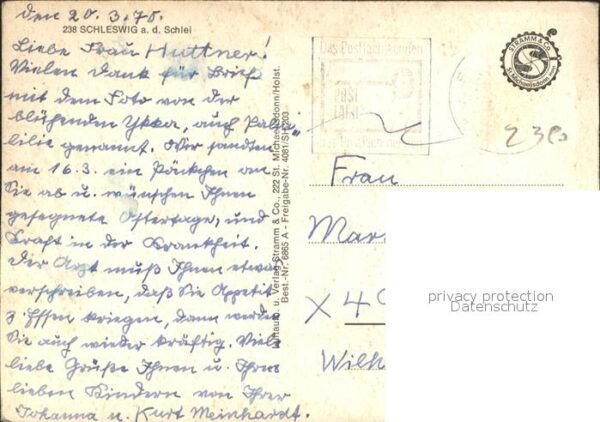 den 20.3.78.
238 SCHLESWIG a. d. Schlei
Liebe Frau Huttner!
Vielen Dank für Brief
mit dem Foto von der
blühenden Ykka, auch Palm-
lilie genannt. Wir sandten
am 16.3. ein Päckchen an
Sie ab u. wünschen Ihnen
gesegnete Ostertage, und
Kraft in der Krankheit.
Der Arzt muß Ihnen etwas
verschreiben, daß Sie Appetit
z. Essen kriegen, dann werden
Sie auch wieder kräftig. Viele
liebe Grüße Ihnen u. Ihren
lieben Kindern von Ihrer
Johanna u. Kurt Meinhardt.
Luftaufn. u. Verlag Stramm & Co., 222 St. Michaelisdonn/Holst.
Best.-Nr. 6865 A - Freigabe-Nr. 4081/SH
STRAMM & Co.
St. Michaelisdonn
Frau
Mar
X 49
Wilh
privacy protection
Datenschutz